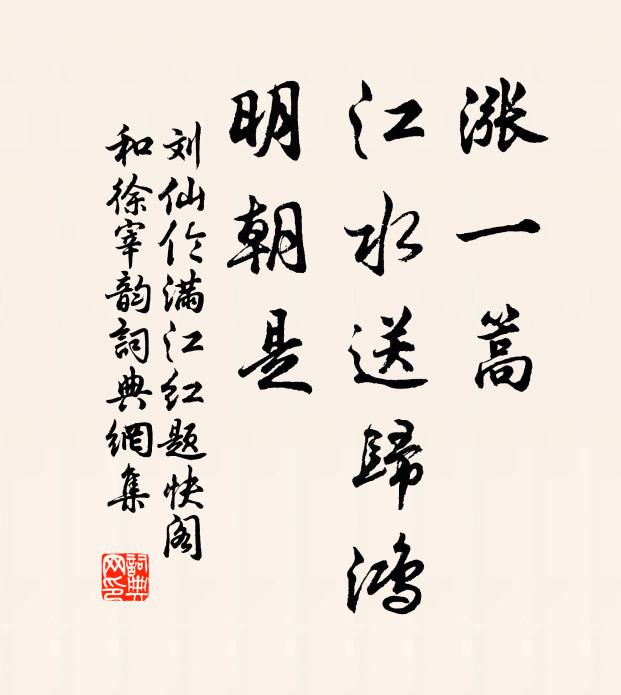 涨一篙
江水送歸鸿
明朝是
刘仙伦满江红题快阁
和徐宰韵詞典網集
詞典
网印